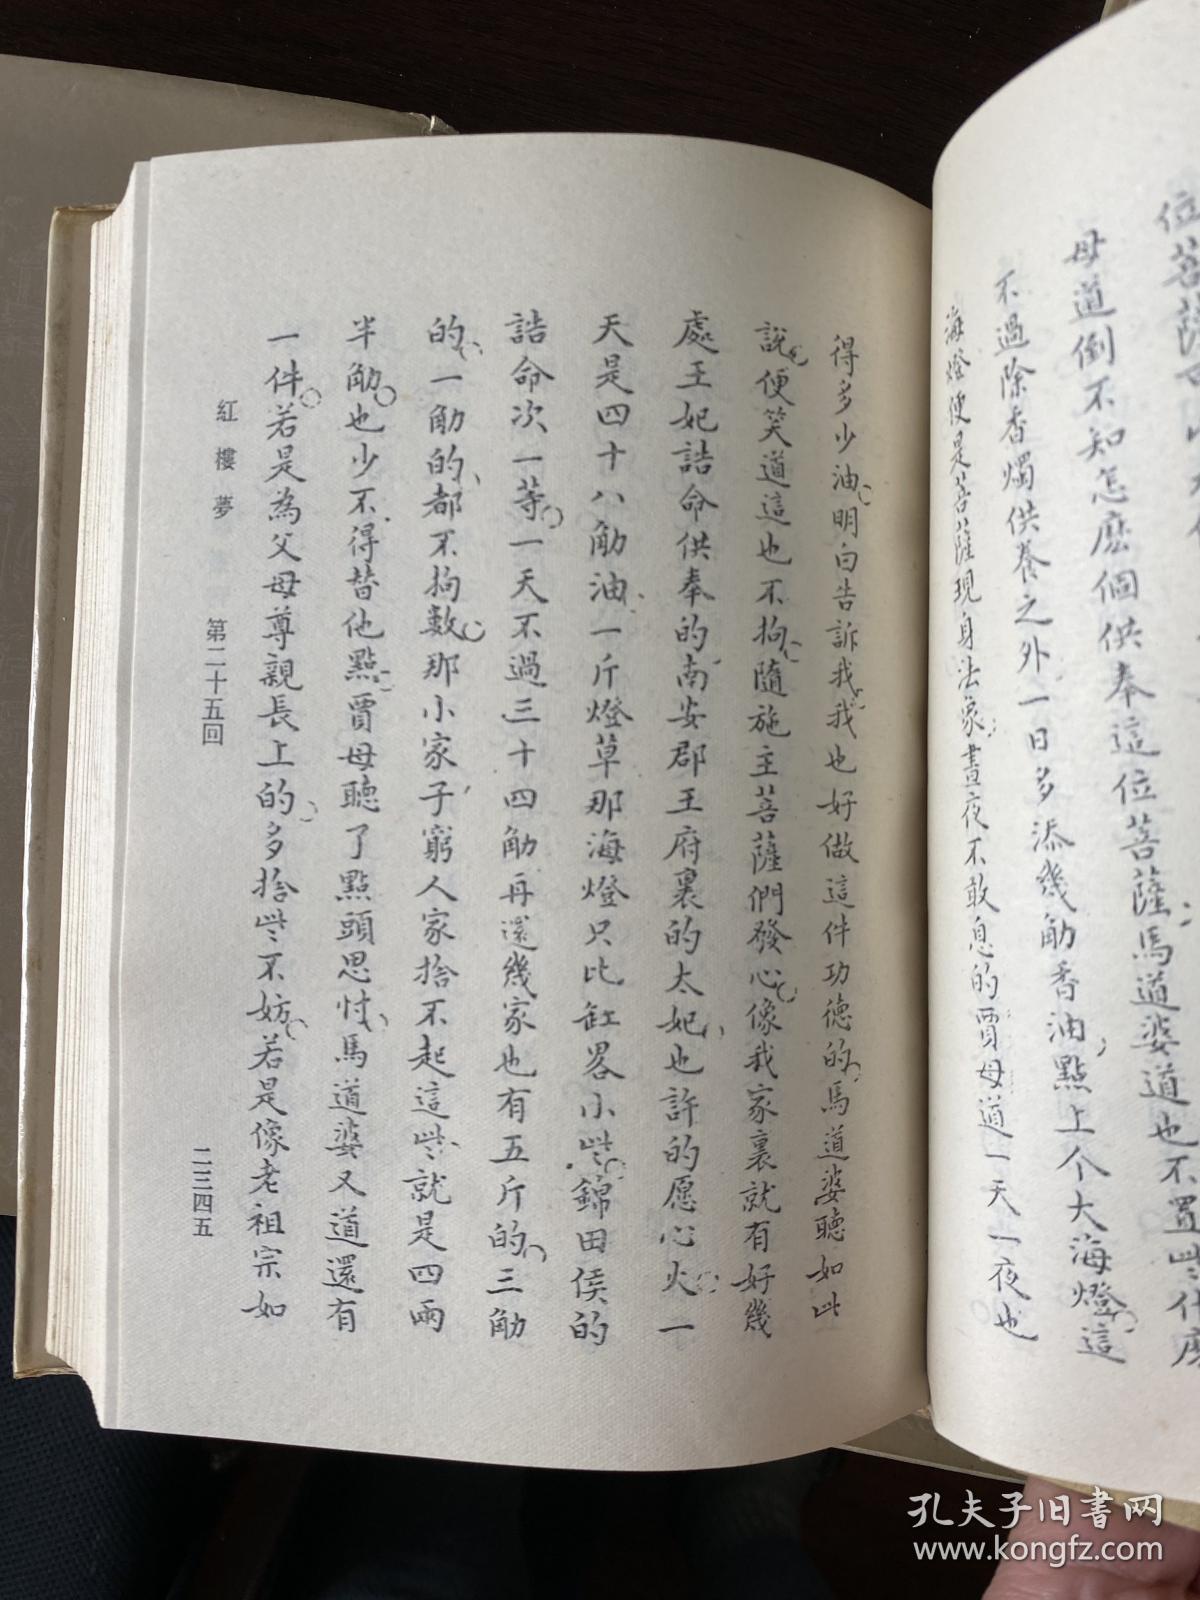 位菩薩
母道倒不知怎麽個供奉這位菩薩馬道婆道也不買些什麽
不過除香燭供養之外一日多添幾觔香油點上个大海燈這
海燈便是菩薩現身法象晝夜不敢息的賈母道一天一夜也
得多少油明白告訴我我也好做這件功德的馬道婆聽如此
說便笑道這也不拘隨施主菩薩們發心像我家裏就有好幾
處王妃誥命供奉的南安郡王府裏的太妃也許的愿心火一
天是四十八觔油一斤燈草那海燈只比缸畧小些錦田侯的
誥命次一等一天不過三十四觔再還幾家也有五斤的三觔
的一觔的都不拘数那小家子窮人家捨不起這些就是四兩
半觔也少不得替他點賈母聽了點頭思忖馬道婆又道還有
一件若是為父母尊親長上的多捨些不妨若是像老祖宗如
紅樓夢 第二十五回 二三四五
孔夫子旧书网
www.kongfz.com